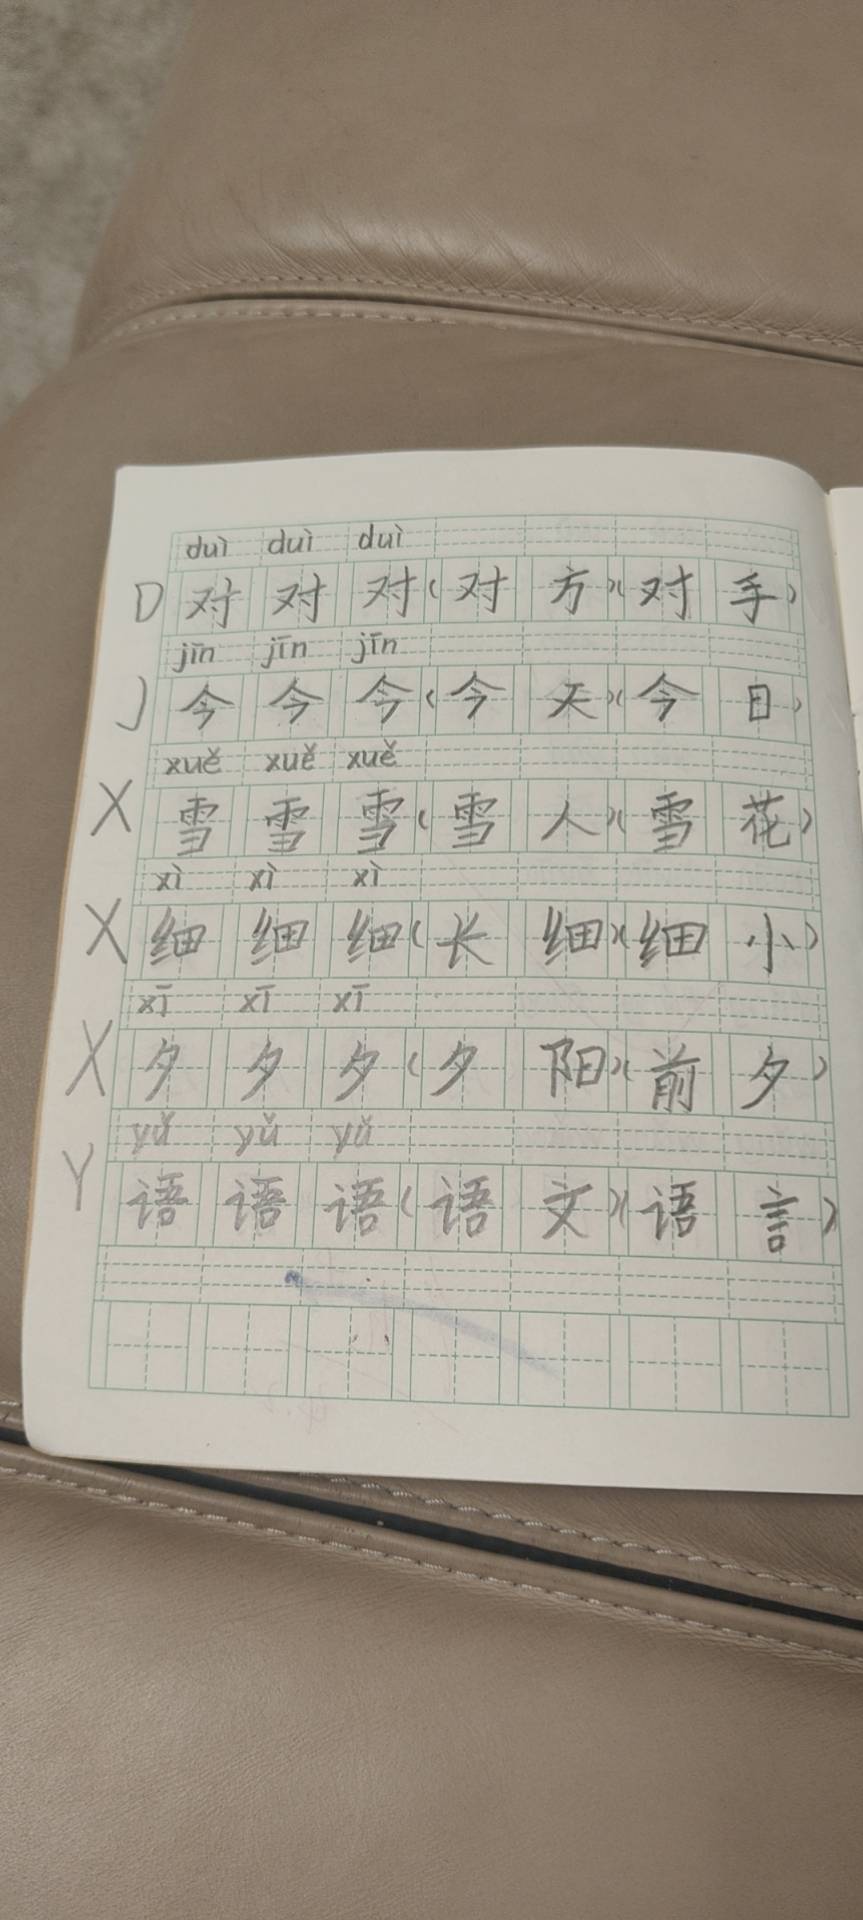 duì duì duì
D 对 对 对 (对 方) (对 手)
jīn jīn jīn
J 今 今 今 (今 天) (今 日)
xuě xuě xuě
X 雪 雪 雪 (雪 人) (雪 花)
xì xì xì
X 细 细 细 (长 细) (细 小)
xī xī xī
X 夕 夕 夕 (夕 阳) (前 夕)
yǔ yǔ yǔ
Y 语 语 语 (语 文) (语 言)